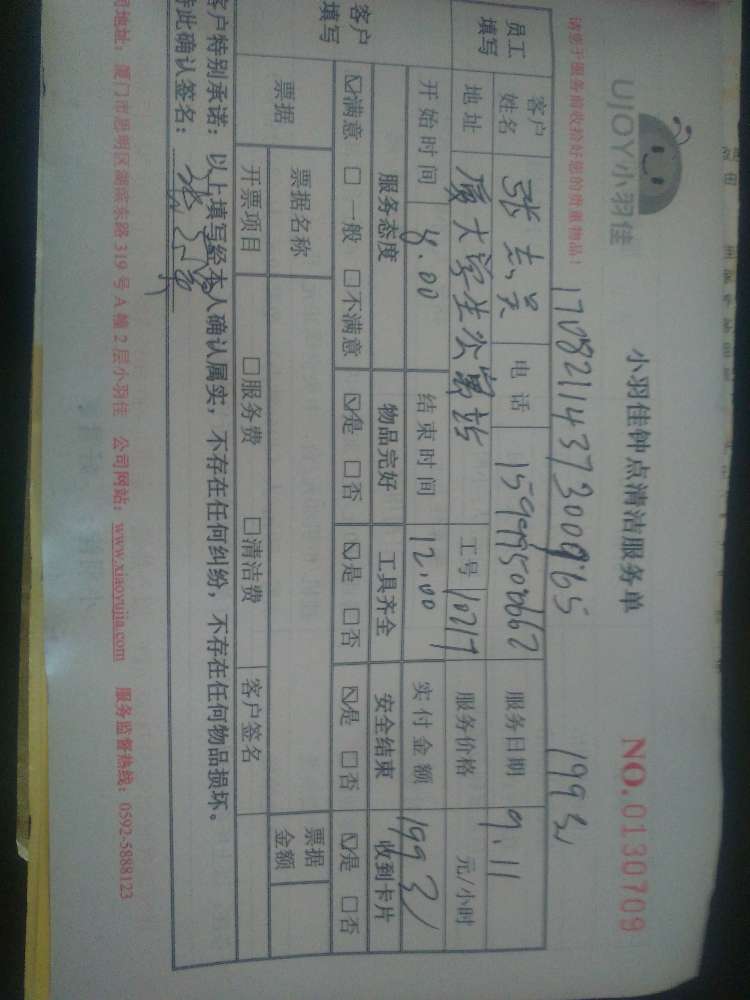 UJOY小羽佳
小羽佳钟点清洁服务单
NO.0130709
请您于服务前收拾好您的贵重物品!
1993
员工填写
客户姓名
电话
服务日期 9.11
地址 厦大学生公寓
工号 10217
服务价格 元/小时
开始时间 8.00
结束时间 12.00
实付金额 1993
客户填写
服务态度 物品完好 工具齐全 安全结束 收到卡片
☑满意 □一般 □不满意 ☑是 □否 ☑是 □否 ☑是 □否 ☑是 □否
票据
票据名称
票据金额
开票项目 □服务费 □清洁费 客户签名
客户特别承诺:以上填写经本人确认属实,不存在任何纠纷,不存在任何物品损坏。
特此确认签名:
司地址:厦门市思明区湖滨东路319号A幢2层小羽佳 公司网站:www.xiaoyujia.com 服务监督热线:0592-5888123